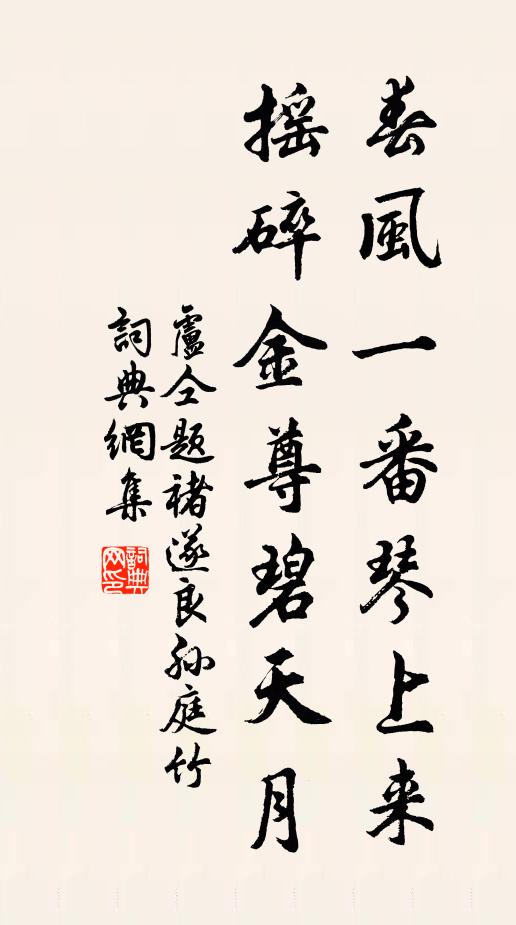 春風一番琴上来
摇碎金尊碧天月
盧仝题褚遂良孙庭竹
詞典網集
詞典网印